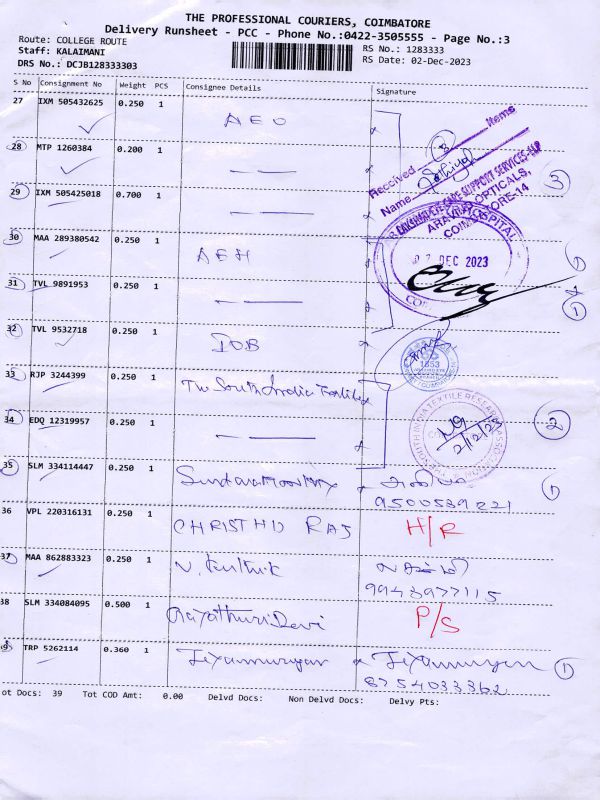 THE PROFESSIONAL COURIERS, COIMBATORE
Delivery Runsheet - PCC - Phone No.:0422-3505555 - Page No.:3
Route: COLLEGE ROUTE
RS No.: 1283333
Staff: KALAIMANI
RS Date: 02-Dec-2023
DRS No.: DCJB128333303
S No Consignment No Weight PCS Consignee Details Signature
27 IXM 505432625 0.250 1
Received 3 Items
28 MTP 1260384 0.200 1
Name
CARE SUPPORT SERVICES-LLP
OPTICALS,
29 IXM 505425018 0.700 1
3
HOSPITAL
30 MAA 289380542 0.250 1 AEH
DEC 2023
31 TVL 9891953 0.250 1
1
32 TVL 9532718 0.250 1 IOB
33 RJP 3244399 0.250 1 The South India Textile
34 EDQ 12319957 0.250 1
SOUTH INDIA TEXTILE RESEARCH
2/12/23
2
35 SLM 334114447 0.250 1
9500589221
1
36 VPL 220316131 0.250 1 CHRISTHU RAJ H/R
37 MAA 862883323 0.250 1 N. Karthik
9943977115
38 SLM 334084095 0.500 1 Gayathuri Devi P/S
39 TRP 5262114 0.360 1 Jeyamurugan Jeyamurugan 1
8754033362
ot Docs: 39 Tot COD Amt: 0.00 Delvd Docs: Non Delvd Docs: Delvy Pts: